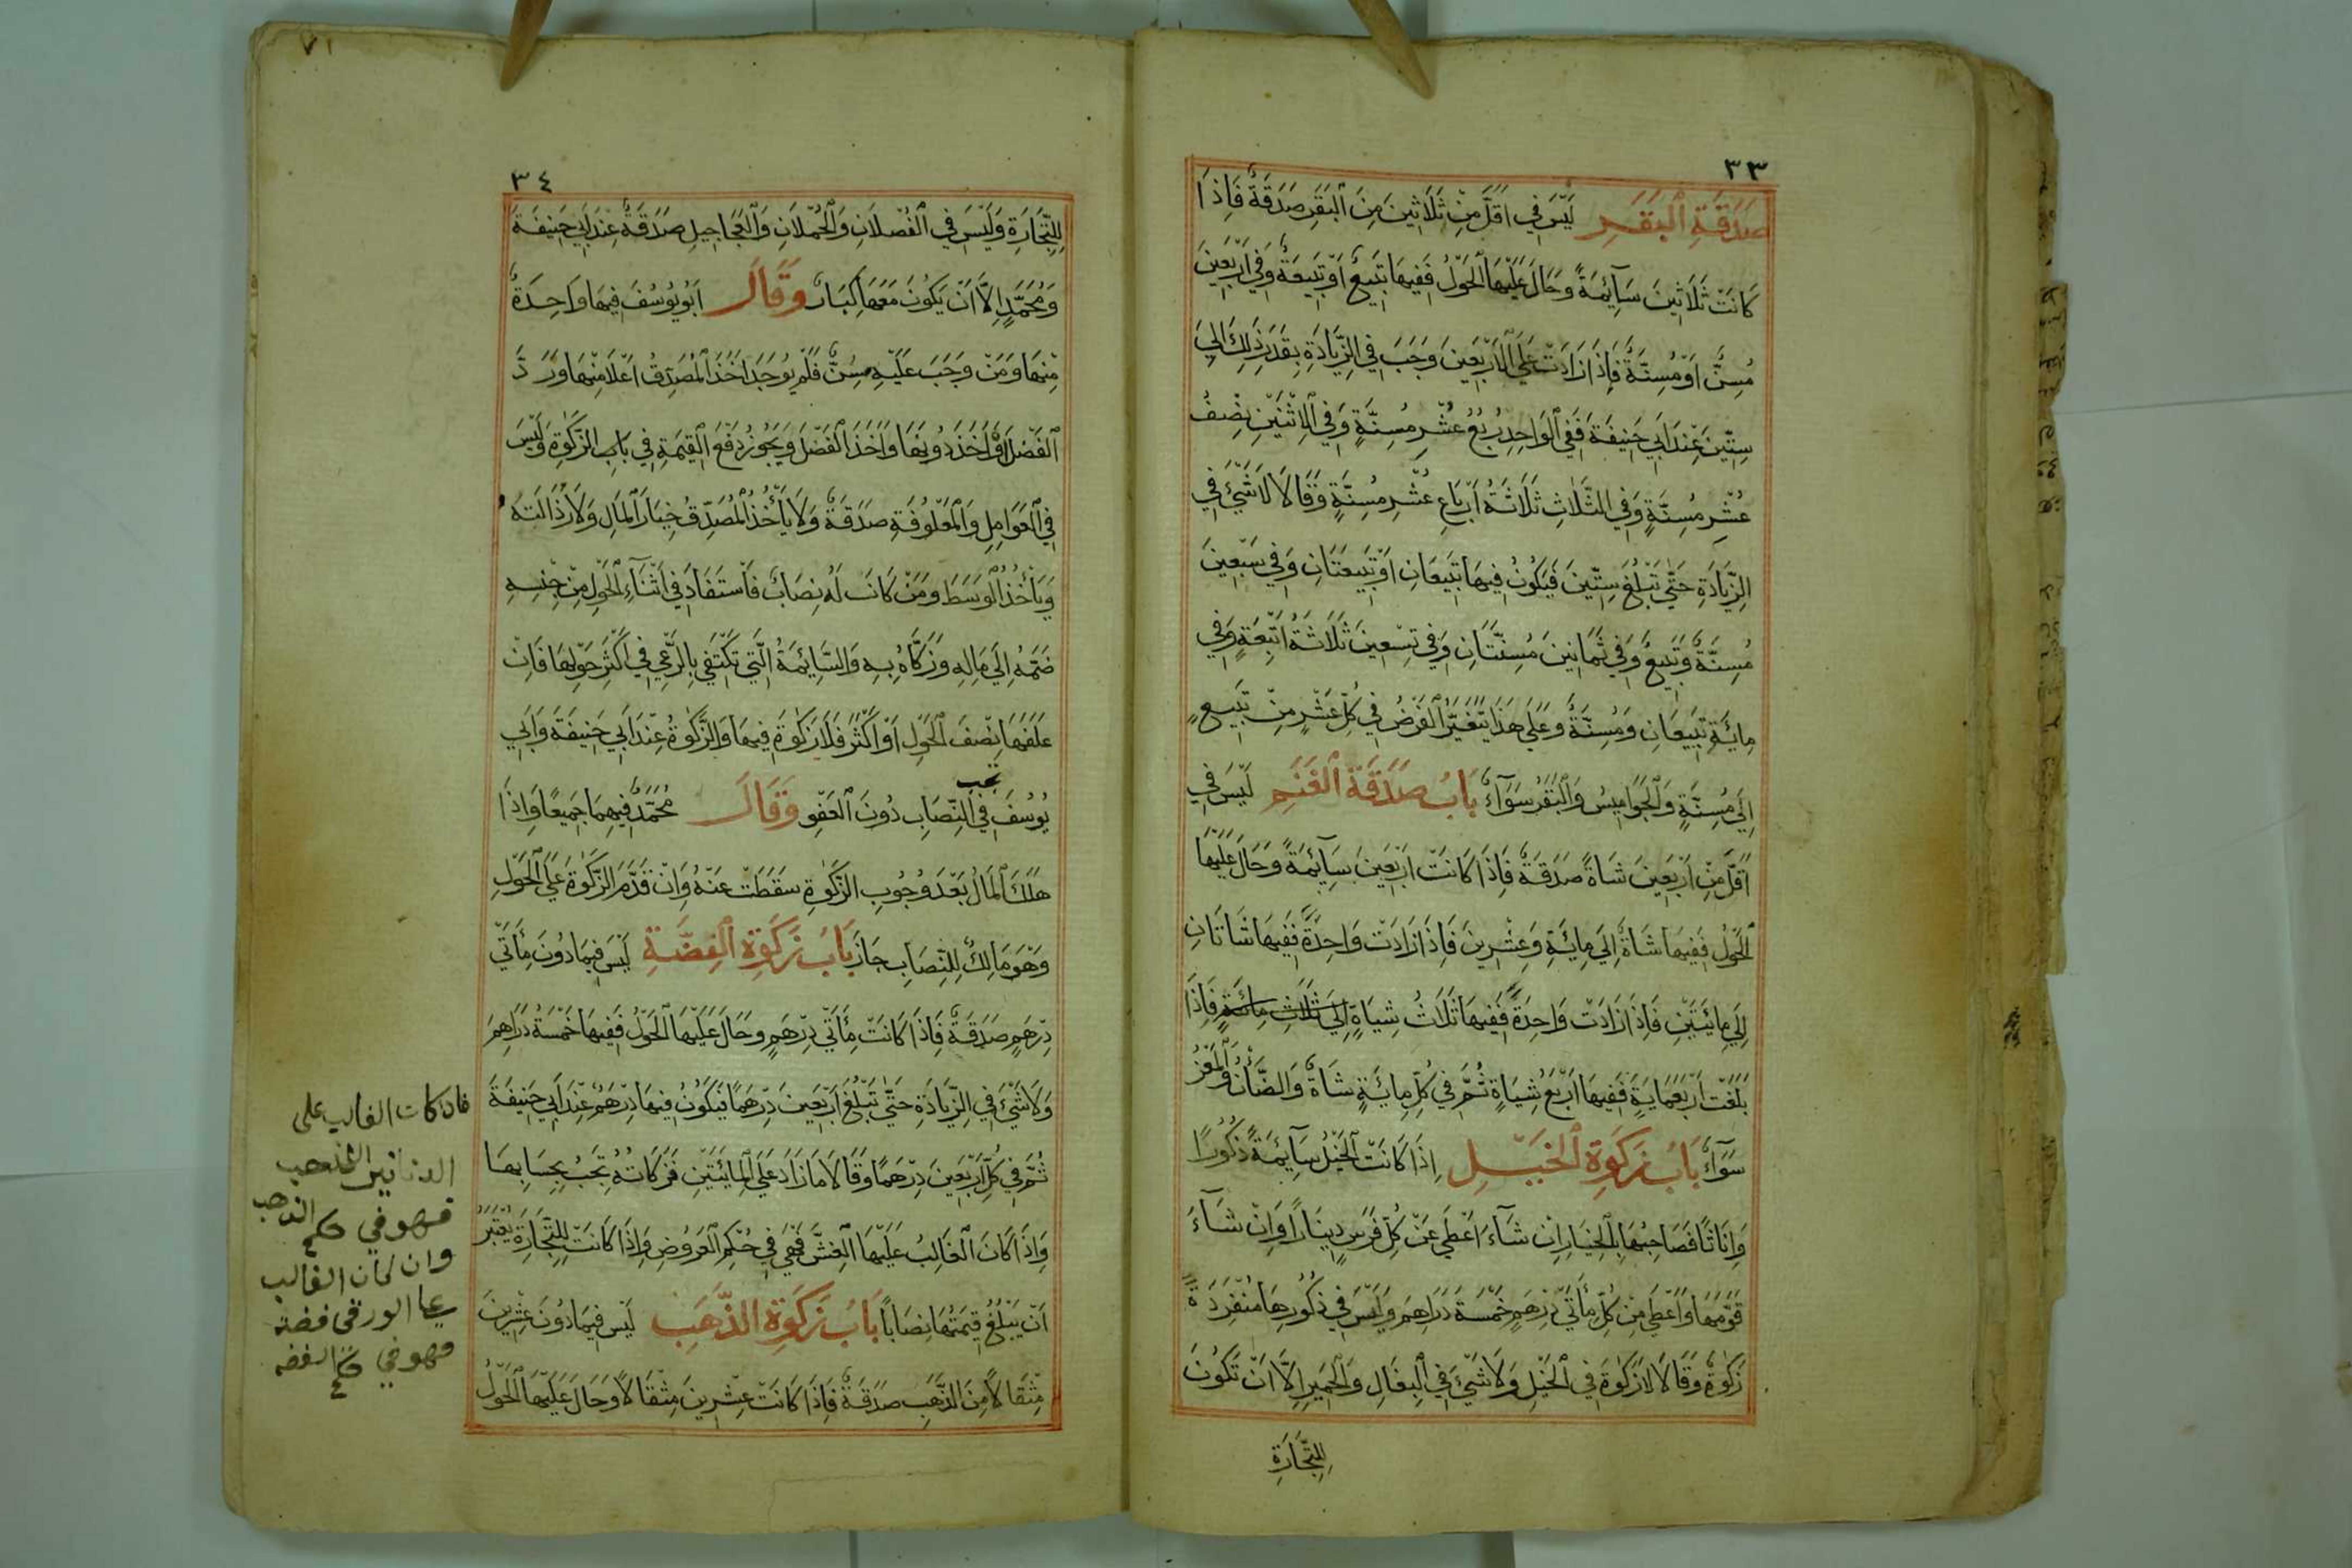 ٣٣
صَدَقَةِ الْبَقَرِ لَيْسَ فِي اَقَلَّ مِنْ ثَلَاثِينَ مِنَ الْبَقَرِ صَدَقَةٌ فَاِذَا
كَانَتْ ثَلَاثِينَ سَآئِمَةً وَحَالَ عَلَيْهَا الْحَوْلُ فَفِيهَا تَبِيعٌ اَوْ تَبِيعَةٌ وَفِي اَرْبَعِينَ
مُسِنٌّ اَوْ مُسِنَّةٌ فَاِذَا زَادَتْ عَلَي الْاَرْبَعِينَ وَجَبَ فِي الزِّيَادَةِ بِقَدْرِ ذَلِكَ اِلَي
سِتِّينَ عِنْدَ اَبِي حَنِيفَةَ فَفِي الْوَاحِدِ رُبُعُ عُشْرِ مُسِنَّةٍ وَفِي الْاِثْنَيْنِ نِصْفُ
عُشْرِ مُسِنَّةٍ وَفِي الثَّلَاثِ ثَلَاثَةُ اَرْبَاعِ عُشْرِ مُسِنَّةٍ وَقَالَا لَا شَيْئَ فِي
الزِّيَادَةِ حَتَّي تَبْلُغَ سِتِّينَ فَيَكُونُ فِيهَا تَبِيعَانِ اَوْ تَبِيعَتَانِ وَفِي سَبْعِينَ
مُسِنَّةٌ وَتَبِيعٌ وَفِي ثَمَانِينَ مُسِنَّتَانِ وَفِي تِسْعِينَ ثَلَاثَةُ اَتْبِعَةٍ وَفِي
مِائَةٍ تَبِيعَانِ وَمُسِنَّةٌ وَعَلَي هَذَا يَتَغَيَّرُ الْفَرْضُ فِي كُلِّ عَشْرٍ مِنْ تَبِيعٍ
اِلَي مُسِنَّةٍ وَالْجَوَامِيسُ وَالْبَقَرُ سَوَآءٌ بَابُ صَدَقَةِ الْغَنَمِ لَيْسَ فِي
اَقَلَّ مِنْ اَرْبَعِينَ شَاةً صَدَقَةٌ فَاِذَا كَانَتْ اَرْبَعِينَ سَآئِمَةً وَحَالَ عَلَيْهَا
الْحَوْلُ فَفِيهَا شَاةٌ اِلَي مِائَةٍ وَعِشْرِينَ فَاِذَا زَادَتْ وَاحِدَةً فَفِيهَا شَاتَانِ
اِلَي مِائَتَيْنِ فَاِذَا زَادَتْ وَاحِدَةً فَفِيهَا ثَلَاثُ شِيَاةٍ اِلَي ثَلَاثِ مِائَةٍ فَاِذَا
بَلَغَتْ اَرْبَعَمِايَةٍ فَفِيهَا اَرْبَعُ شِيَاةٍ ثُمَّ فِي كُلِّ مِايَةٍ شَاةٌ وَالضَّأْنُ وَالْمَعْزُ
سَوَآءٌ بَابُ زَكَوةِ الْخَيْلِ اِذَا كَانَتِ الْخَيْلُ سَآئِمَةً ذُكُورًا
وَاِنَاثًا فَصَاحِبُهَا بِالْخِيَارِ اِنْ شَآءَ اَعْطَي عَنْ كُلِّ فَرَسٍ دِينَارًا وَاِنْ شَآءَ
قَوَّمَهَا وَاَعْطَي مِنْ كُلِّ مِأَتَيْ دِرْهَمٍ خَمْسَةَ دَرَاهِمَ وَلَيْسَ فِي ذُكُورِهَا مُنْفَرِدَةً
زَكَوةٌ وَقَالَا لَا زَكَوةَ فِي الْخَيْلِ وَلَا شَيْئَ فِي الْبِغَالِ وَالْحَمِيرِ اِلَّا اَنْ تَكُونَ
لِلتِّجَارَةِ
٧١
٣٤
لِلتِّجَارَةِ وَلَيْسَ فِي الْفُصْلَانِ وَالْحُمْلَانِ وَالْعَجَاجِيلِ صَدَقَةٌ عِنْدَ اَبِي حَنِيفَةَ
وَمُحَمَّدٍ اِلَّا اَنْ يَكُونَ مَعَهَا كِبَارٌ وَقَالَ اَبُو يُوسُفَ فِيهَا وَاحِدَةٌ
مِنْهَا وَمَنْ وَجَبَ عَلَيْهِ سِنٌّ فَلَمْ يُوجَدْ اَخَذَ الْمُصَدِّقُ اَعْلَا مِنْهَا وَرَدَّ
الْفَضْلَ اَوْ اَخَذَ دُونَهَا وَاَخَذَ الْفَضْلَ وَيَجُوزُ دَفْعُ الْقِيمَةِ فِي بَابِ الزَّكَوةِ وَلَيْسَ
فِي الْعَوَامِلِ وَالْمَعْلُوفَةِ صَدَقَةٌ وَلَا يَأْخُذُ الْمُصَدِّقُ خِيَارَ الْمَالِ وَلَا رُذَالَتَهُ
وَيَأْخُذُ الْوَسَطَ وَمَنْ كَانَ لَهُ نِصَابٌ فَاسْتَفَادَ فِي اَثْنَآءِ الْحَوْلِ مِنْ جِنْسِهِ
ضَمَّهُ اِلَي مَالِهِ وَزَكَّاهُ بِهِ وَالسَّائِمَةُ الَّتِي تَكْتَفِي بِالرَّعْيِ فِي اَكْثَرِ حَوْلِهَا فَاِنْ
عَلَفَهَا نِصْفَ الْحَوْلِ اَوْ اَكْثَرَ فَلَا زَكَوةَ فِيهَا وَالزَّكَوةُ عِنْدَ اَبِي حَنِيفَةَ وَاَبِي
تجب
يُوسُفَ فِي النِّصَابِ دُونَ الْعَفْوِ وَقَالَ مُحَمَّدٌ فِيهِمَا جَمِيعًا وَاِذَا
هَلَكَ الْمَالُ بَعْدَ وُجُوبِ الزَّكَوةِ سَقَطَتْ عَنْهُ وَاِنْ قَدَّمَ الزَّكَوةَ عَلَي الْحَوْلِ
وَهُوَ مَالِكٌ لِلنِّصَابِ جَازَ بَابُ زَكَوةِ الْفِضَّةِ لَيْسَ فِيمَا دُونَ مِأَتَيْ
دِرْهَمٍ صَدَقَةٌ فَاِذَا كَانَتْ مِأَتَيْ دِرْهَمٍ وَحَالَ عَلَيْهَا الْحَوْلُ فَفِيهَا خَمْسَةُ دَرَاهِمَ
وَلَا شَيْئَ فِي الزِّيَادَةِ حَتَّي تَبْلُغَ اَرْبَعِينَ دِرْهَمًا فَيَكُونُ فِيهَا دِرْهَمٌ عِنْدَ اَبِي حَنِيفَةَ
ثُمَّ فِي كُلِّ اَرْبَعِينَ دِرْهَمًا وَقَالَا مَا زَادَ عَلَي الْمِائَتَيْنِ فَزَكَاتُهُ تَجِبُ بِحِسَابِهَا
وَاِذَا كَانَ الْغَالِبُ عَلَيْهَا الْغِشَّ فَهِيَ فِي حُكْمِ الْعَرُوضِ وَاِذَا كَانَتْ لِلتِّجَارَةِ يُعْتَبَرُ
اَنْ يَبْلُغَ قِيمَتُهَا نِصَابًا بَابُ زَكَوةِ الذَّهَبِ لَيْسَ فِيمَا دُونَ عِشْرِينَ
مِثْقَالًا مِنَ الذَّهَبِ صَدَقَةٌ فَاِذَا كَانَتْ عِشْرِينَ مِثْقَالًا وَحَالَ عَلَيْهَا الْحَوْلُ
فاذا كانت الغالب على
الدنانير الذهب
فهو في حكم الذهب
وان كان الغالب
على الورق فضة
فهو في حكم الفضه